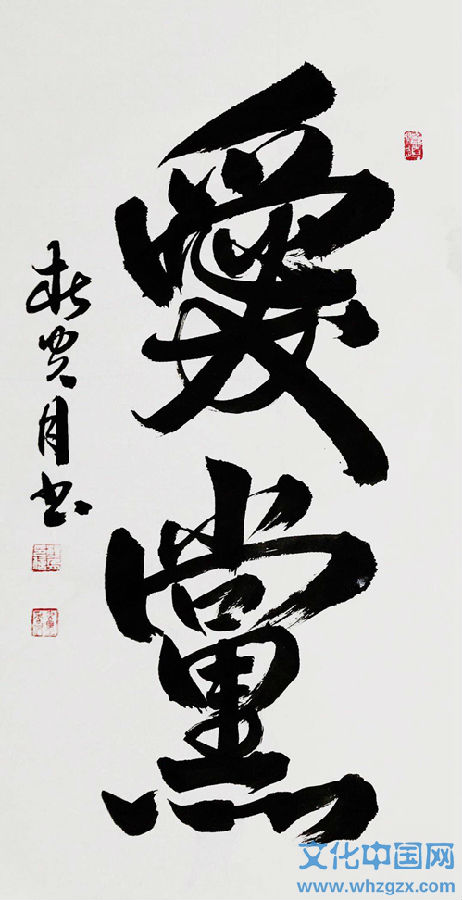 愛黨
月书
文化中国网
www.whzgzx.com